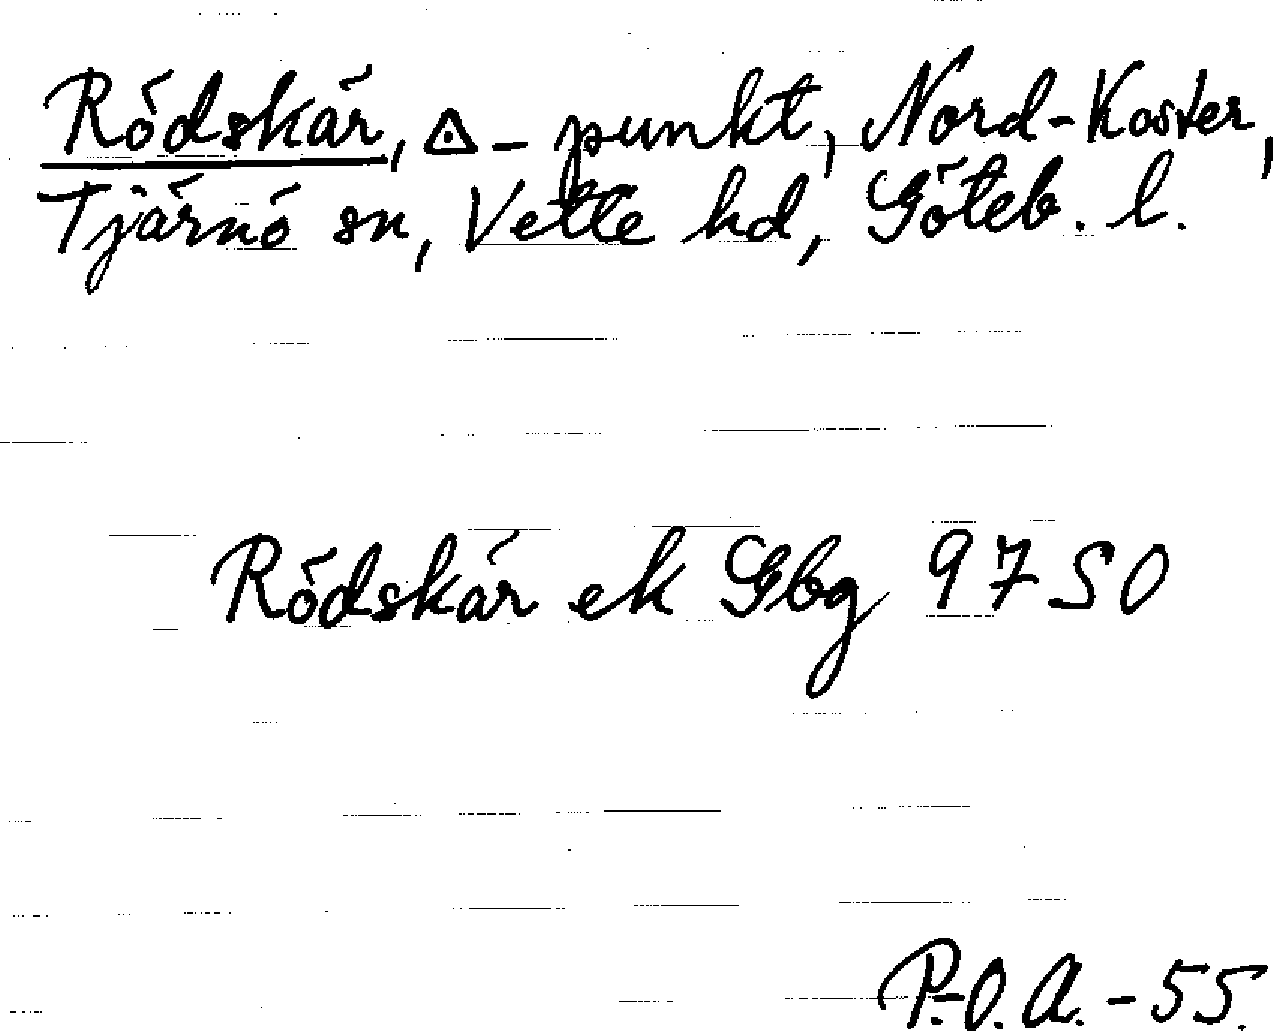 Rödskär, ◬-punkt, Nord-Koster,
Tjärnö sn, Vette hd, Göteb. l.
Rödskär ek Gbg 97 SO
P.-O. A. -55.